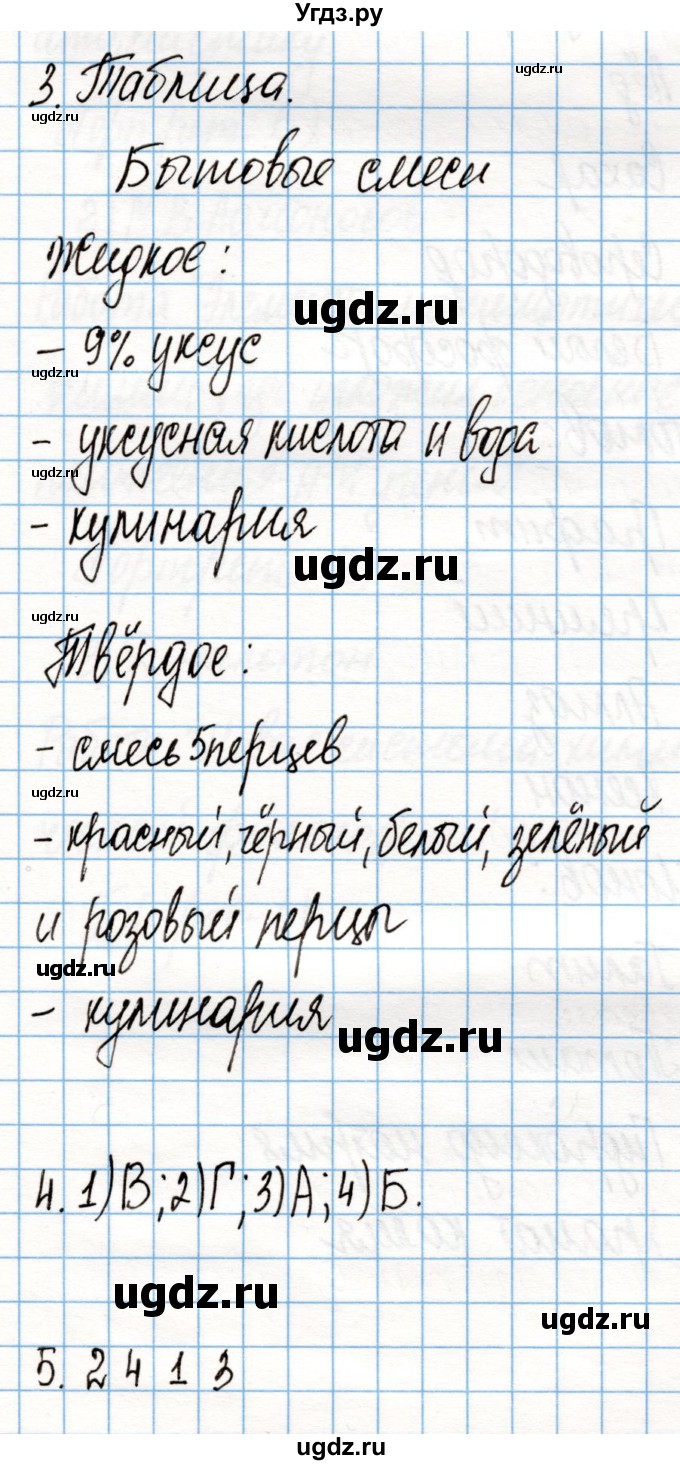 Угдз.ру
ugdz.ru
3. Таблица.
ugdz.ru
Бытовые смеси
Жидкое:
ugdz.ru
- 9% уксус
ugdz.ru
- уксусная кислота и вода
ugdz.ru
- кулинария
ugdz.ru
ugdz.ru
Твёрдое:
- смесь 5 перцев
ugdz.ru
- красный, чёрный, белый, зелёный
и розовый перцы
ugdz.ru
- кулинария
ugdz.ru
4. 1) В; 2) Г; 3) А; 4) Б.
ugdz.ru
ugdz.ru
5. 2 4 1 3
ugdz.ru